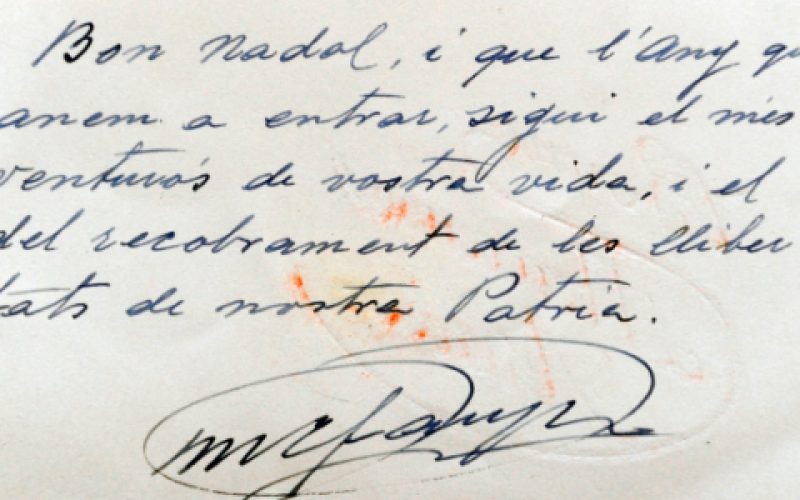 Bon Nadal, i que l'Any qu
anem a entrar, sigui el més
venturós de vostra vida, i el
del recobrament de les lliber
tats de nostra Patria.